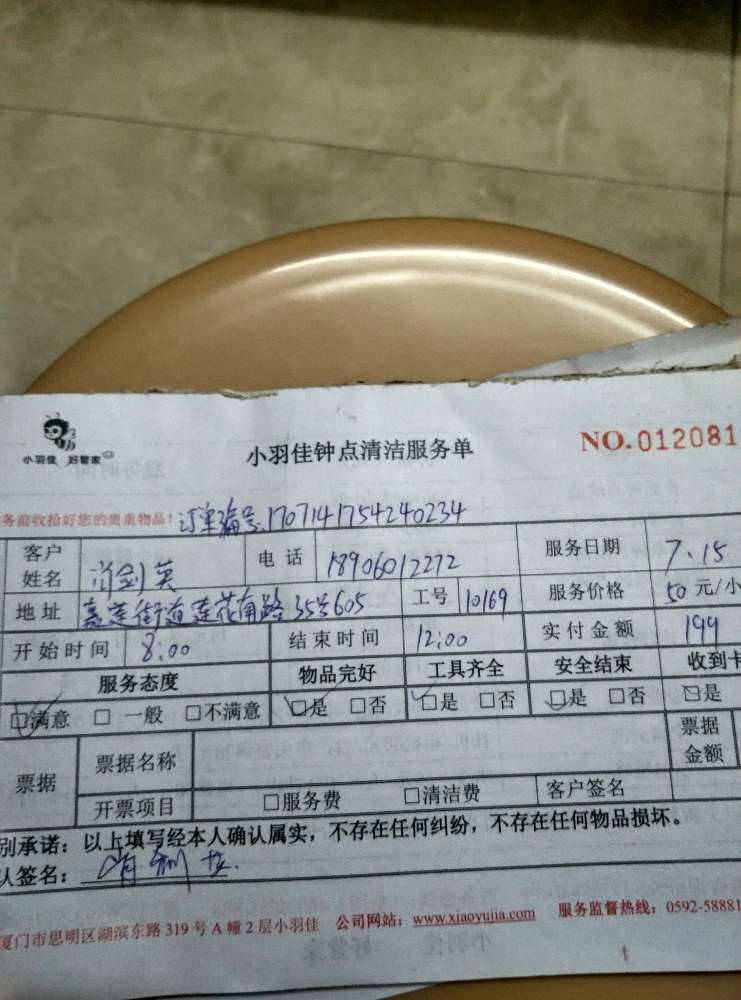 小羽佳 好管家
小羽佳钟点清洁服务单
NO.012081
务前收拾好您的贵重物品!
订单编号:1707141754240234
客户姓名 肖剑英 电话 18906012272 服务日期 7.15
地址 嘉莲街道莲花南路35号605 工号 10169 服务价格 50元/小
开始时间 8:00 结束时间 12:00 实付金额 199
服务态度 物品完好 工具齐全 安全结束 收到卡
□满意 □一般 □不满意 □是 □否 □是 □否 □是 □否 □是
票据 票据名称 票据金额
开票项目 □服务费 □清洁费 客户签名
别承诺:以上填写经本人确认属实,不存在任何纠纷,不存在任何物品损坏。
认签名:
厦门市思明区湖滨东路 319 号 A 幢 2 层小羽佳 公司网站:www.xiaoyujia.com 服务监督热线:0592-58881
1